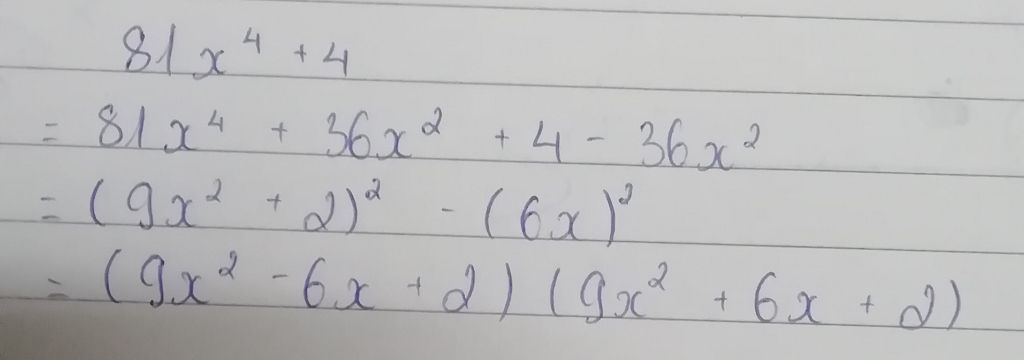 81x⁴ + 4
= 81x⁴ + 36x² + 4 - 36x²
= (9x² + 2)² - (6x)²
= (9x² - 6x + 2) (9x² + 6x + 2)